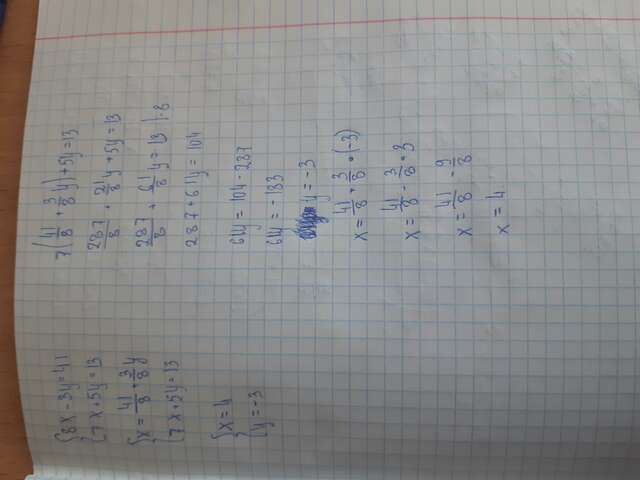 {8x - 3y = 41
{7x + 5y = 13
{x = 41/8 + 3/8 y
{7x + 5y = 13
{x = 4
{y = -3
7(41/8 + 3/8 y) + 5y = 13
287/8 + 21/8 y + 5y = 13
287/8 + 61/8 y = 13 | · 8
287 + 61y = 104
61y = 104 - 287
61y = -183
y = -3
x = 41/8 + 3/8 · (-3)
x = 41/8 - 3/8 · 3
x = 41/8 - 9/8
x = 4